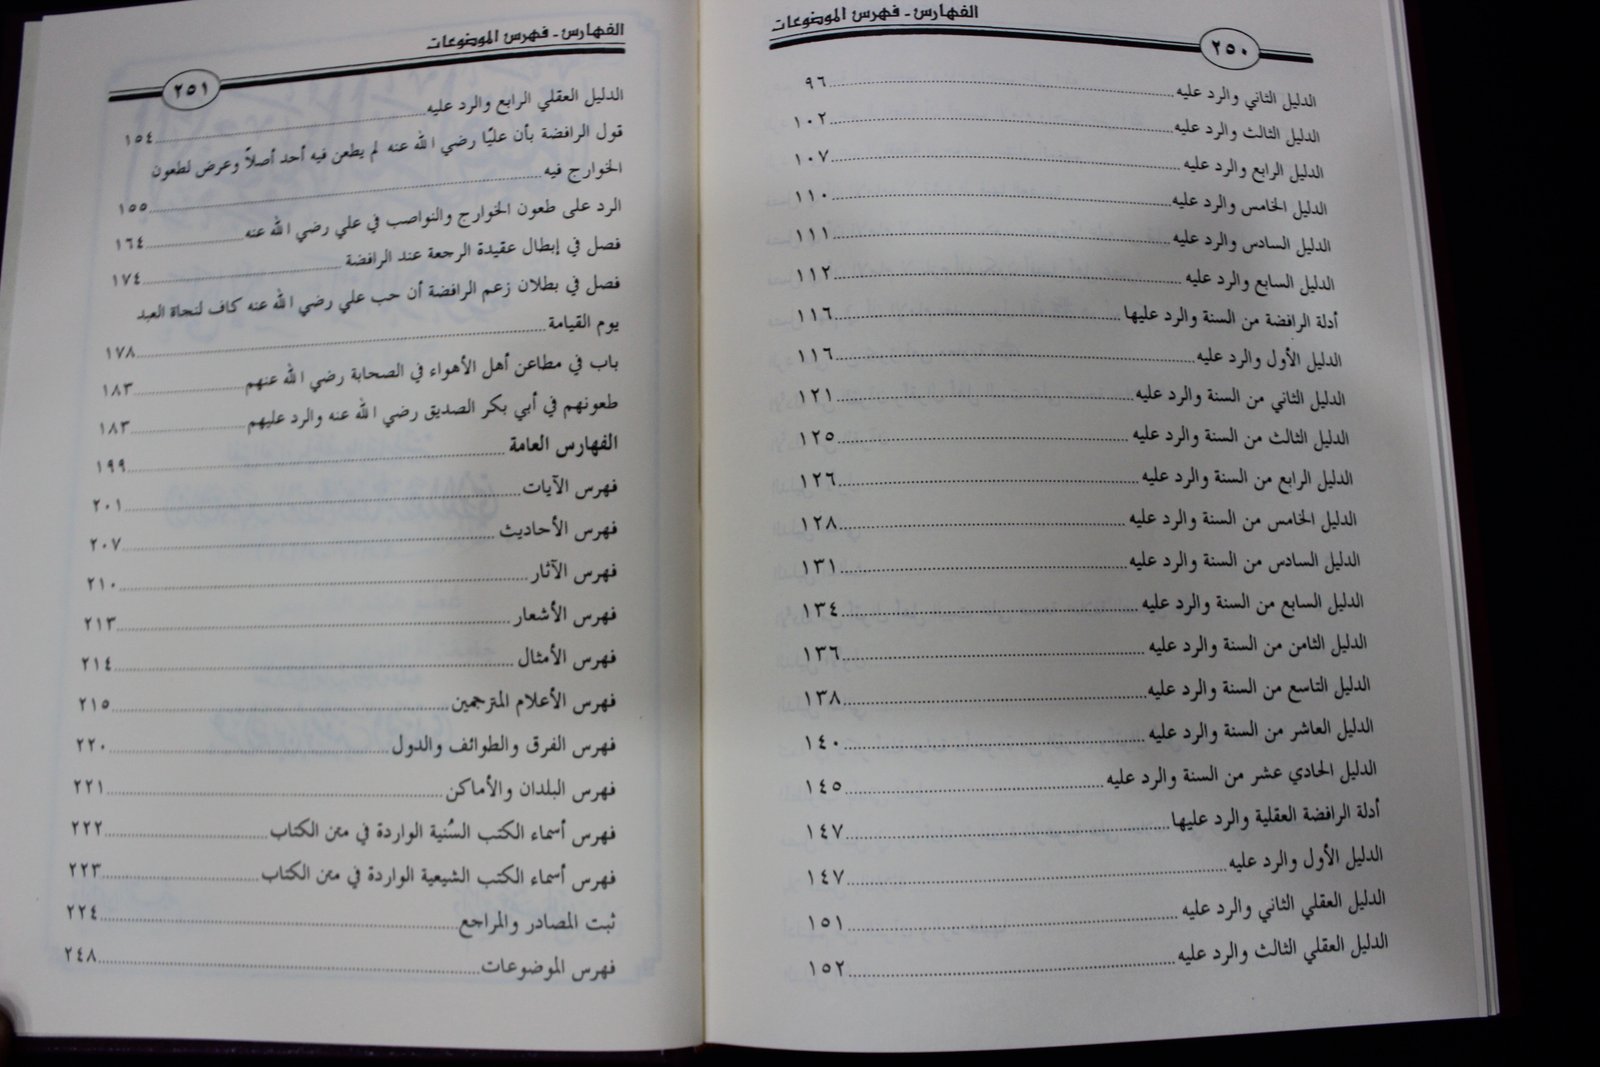 الفهارس - فهرس الموضوعات
٢٥٠
الدليل الثاني والرد عليه ٩٦
الدليل الثالث والرد عليه ١٠٢
الدليل الرابع والرد عليه ١٠٧
الدليل الخامس والرد عليه ١١٠
الدليل السادس والرد عليه ١١١
الدليل السابع والرد عليه ١١٢
أدلة الرافضة من السنة والرد عليها ١١٦
الدليل الأول والرد عليه ١١٦
الدليل الثاني من السنة والرد عليه ١٢١
الدليل الثالث من السنة والرد عليه ١٢٥
الدليل الرابع من السنة والرد عليه ١٢٦
الدليل الخامس من السنة والرد عليه ١٢٨
الدليل السادس من السنة والرد عليه ١٣١
الدليل السابع من السنة والرد عليه ١٣٤
الدليل الثامن من السنة والرد عليه ١٣٦
الدليل التاسع من السنة والرد عليه ١٣٨
الدليل العاشر من السنة والرد عليه ١٤٠
الدليل الحادي عشر من السنة والرد عليه ١٤٥
أدلة الرافضة العقلية والرد عليها ١٤٧
الدليل الأول والرد عليه ١٤٧
الدليل العقلي الثاني والرد عليه ١٥١
الدليل العقلي الثالث والرد عليه ١٥٢
الفهارس - فهرس الموضوعات
٢٥١
الدليل العقلي الرابع والرد عليه ١٥٤
قول الرافضة بأن عليًا رضي الله عنه لم يطعن فيه أحد أصلاً وعرض لطعون
الخوارج فيه ١٥٥
الرد على طعون الخوارج والنواصب في علي رضي الله عنه ١٦٤
فصل في إبطال عقيدة الرجعة عند الرافضة ١٧٤
فصل في بطلان زعم الرافضة أن حب علي رضي الله عنه كاف لنجاة العبد
يوم القيامة ١٧٨
باب في مطاعن أهل الأهواء في الصحابة رضي الله عنهم ١٨٣
طعونهم في أبي بكر الصديق رضي الله عنه والرد عليهم ١٨٣
الفهارس العامة ١٩٩
فهرس الآيات ٢٠١
فهرس الأحاديث ٢٠٧
فهرس الآثار ٢١٠
فهرس الأشعار ٢١٣
فهرس الأمثال ٢١٤
فهرس الأعلام المترجمين ٢١٥
فهرس الفرق والطوائف والدول ٢٢٠
فهرس البلدان والأماكن ٢٢١
فهرس أسماء الكتب السُنية الواردة في متن الكتاب ٢٢٢
فهرس أسماء الكتب الشيعية الواردة في متن الكتاب ٢٢٣
ثبت المصادر والمراجع ٢٢٤
فهرس الموضوعات ٢٤٨